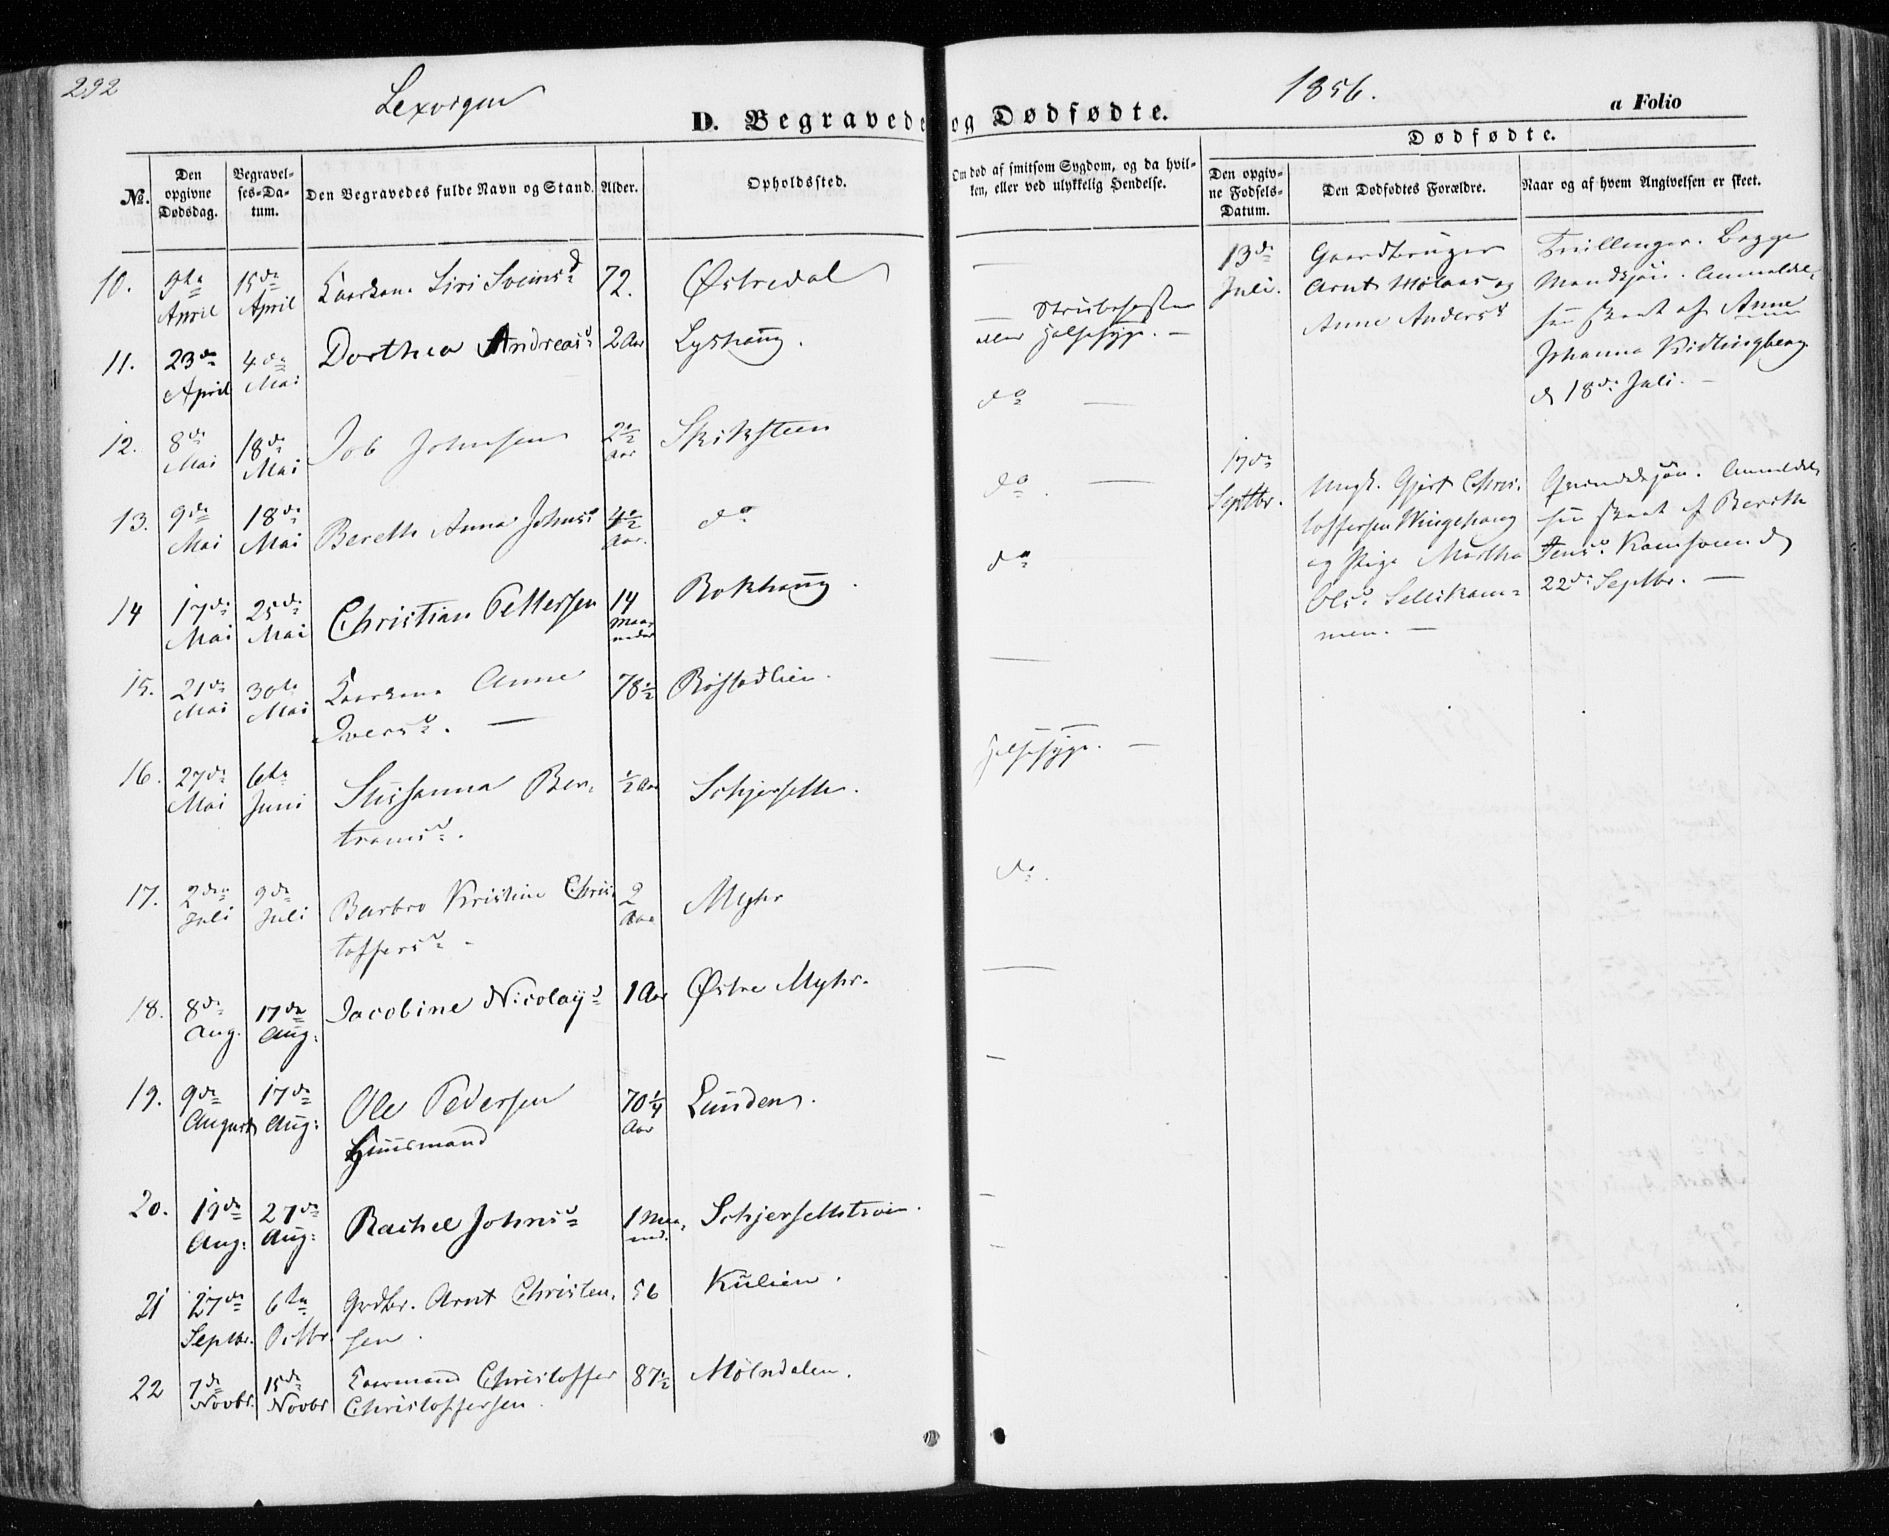 292
Lexvigen
1856.
D. Begravede og Dødfødte.
a Folio
Dødfødte.
No.
Den opgivne Dødsdag.
Begravelses-Datum.
Den Begravedes fulde Navn og Stand.
Alder.
Opholdssted.
Om død af smitsom Sygdom, og da hvilken, eller ved ulykkelig Hendelse.
Den opgivne Fødsels-Datum.
Den Dødfødtes Forældre.
Naar og af hvem Angivelsen er skeet.
10. 9de April 15de April Kaarkone Siri Sveinsd. 72. Østredal —
11. 23de April 4de Mai Dorthea Andreasd. 2 Aar Lyshaug. — Strubehoste eller Halssyge. —
12. 8de Mai 18de Mai Job Johnsen 2½ Aar Skiksteen do —
13. 9de Mai 18de Mai Bereth Anna Johnsd. 4½ Aar. do do. —
14 17de Mai 25de Mai Christian Pettersen 14 Maaneder Rokhaug. do
15. 21de Mai 30te Mai Kaarkone Anne Iversd. — 78½ Røstadlien. —
16. 27de Mai 6te Juni Susanna Bertramsd. ½ Aar Schjerseth. Halssyge. —
17. 2den Juli 9de Juli Barbro Kristine Christoffersd. 2 Aar Myhr do.
18. 8de Aug. 17de Aug: Jacobine Nicolayd. 1 Aar Østre Myhr. —
19. 9de August 17de Aug: Ole Pedersen Huusmand 70¼ Aar Lunden. —
20. 19de Aug: 27de Aug: Rachel Johnsd. 1 Maaned. Schjersethstrøen. —
21 27de Septbr. 6te Octbr. Grdbr. Arnt Christensen. 56 Kulien. —
22 7de Novbr. 15de Novbr Kaarmand Christoffer Christoffersen. 87½ Mölndalen.
13de Juli. Gaardbruger Arnt Molaas og Anne Andersd.
Tvillinger. Begge
Mandkjön. Anmeldel-
sen skeet af Anne
Johanna Kidlingberg
d 18de Juli. —
17de Septbr. Ungk. Gjert Chris-
toffersen Wingehaug
og Pige Martha
Olsd.
men. —
Qvindekjön. Anmeldel-
sen skeet af Bereth
Jensd. Ramsoen d
22de Septbr. —